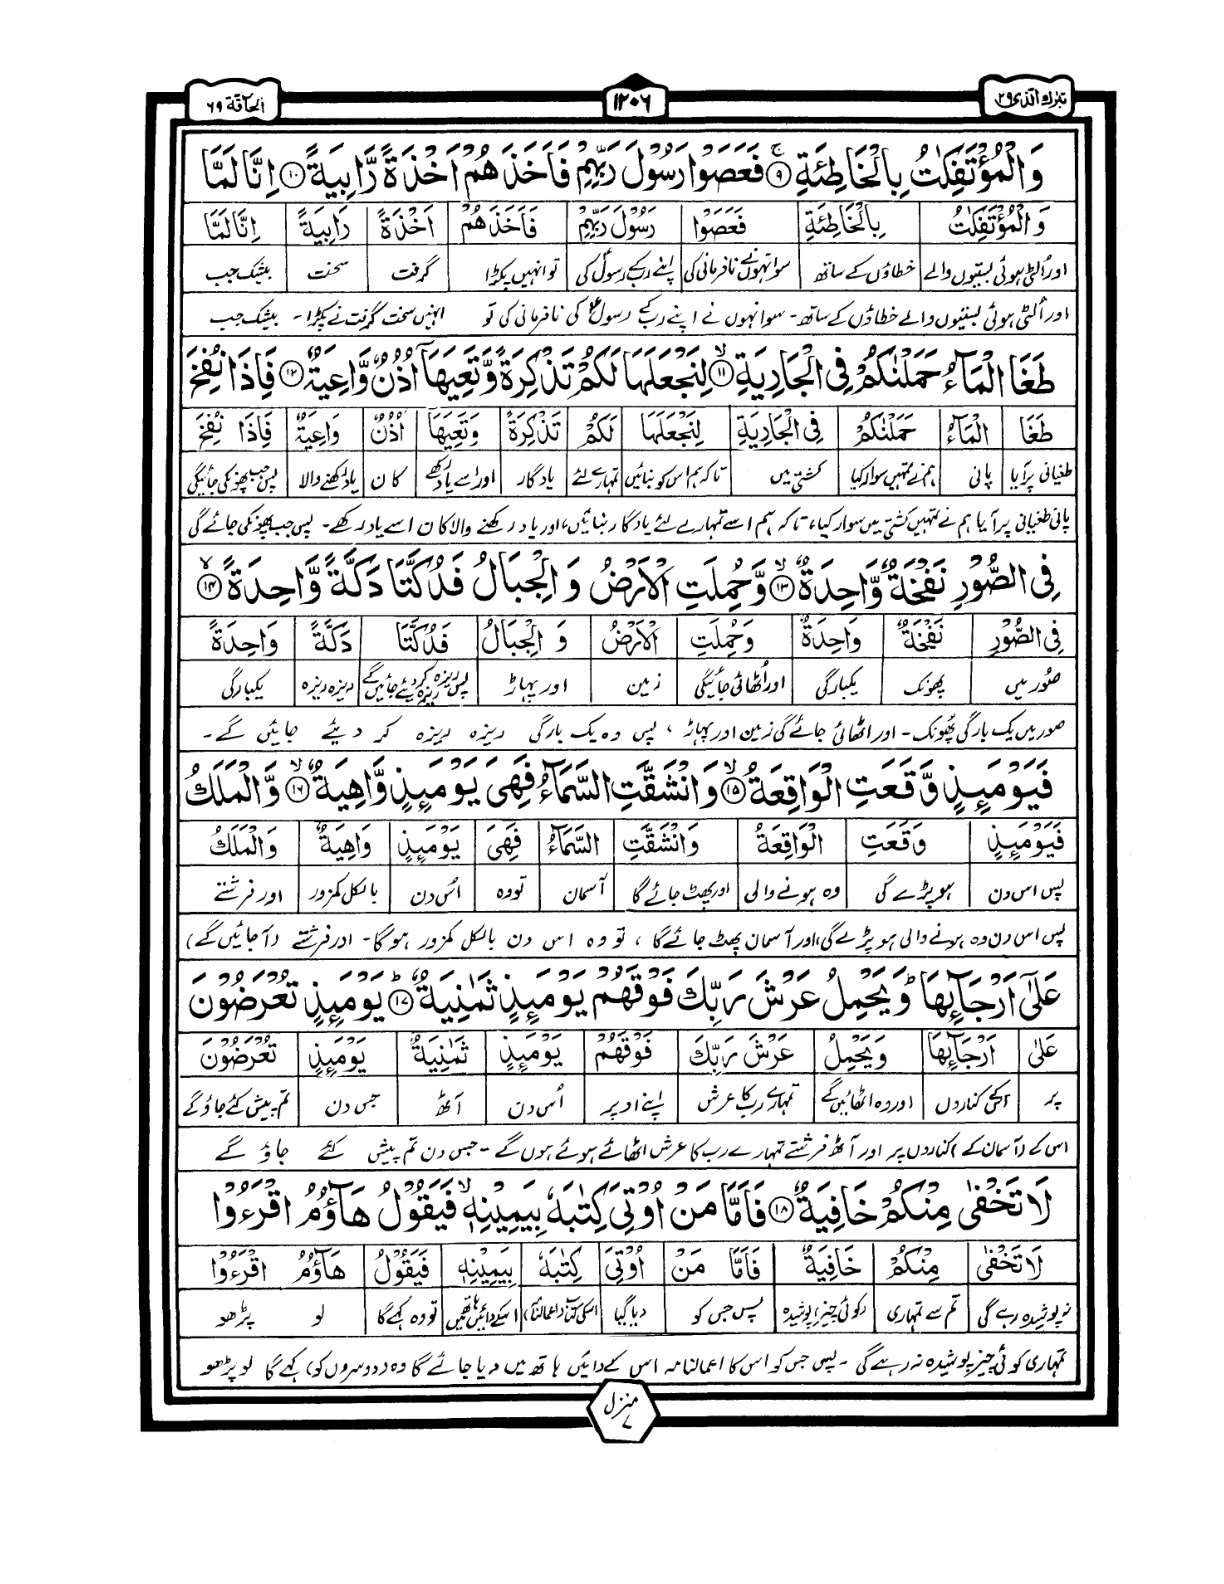 تبرك الذى ٢٩
١٢٠٦
الحآقة ٦٩
وَالْمُؤْتَفِكٰتُ بِالْخَاطِئَةِ ۹ فَعَصَوْا رَسُوْلَ رَبِّهِمْ فَاَخَذَهُمْ اَخْذَةً رَّابِيَةً ۱۰ اِنَّا لَمَّا
وَالْمُؤْتَفِكٰتُ بِالْخَاطِئَةِ فَعَصَوْا رَسُوْلَ رَبِّهِمْ فَاَخَذَهُمْ اَخْذَةً رَابِيَةً اِنَّا لَمَّا
اور اُلٹی ہوئی بستیوں والے خطاؤں کے ساتھ سو انہوں نے نافرمانی کی اپنے رب کے رسولؑ کی تو انہیں پکڑا گرفت سخت بیشک جب
اور اُلٹی ہوئی بستیوں والے خطاؤں کے ساتھ۔ سو انہوں نے اپنے رب کے رسولؑ کی نافرمانی کی تو انہیں سخت گرفت نے پکڑا۔ بیشک جب
طَغَا الْمَآءُ حَمَلْنٰكُمْ فِى الْجَارِيَةِ ۱۱ لِنَجْعَلَهَا لَكُمْ تَذْكِرَةً وَّتَعِيَهَآ اُذُنٌ وَّاعِيَةٌ ۱۲ فَاِذَا نُفِخَ
طَغَا الْمَآءُ حَمَلْنٰكُمْ فِى الْجَارِيَةِ لِنَجْعَلَهَا لَكُمْ تَذْكِرَةً وَتَعِيَهَآ اُذُنٌ وَاعِيَةٌ فَاِذَا نُفِخَ
طغیانی پر آیا پانی ہم نے تمہیں سوار کیا کشتی میں تاکہ ہم اس کو بنائیں تمہارے لئے یادگار اور اسے یاد رکھے کان یاد رکھنے والا پس جب پھونکی جائیگی
پانی طغیانی پر آیا ہم نے تمہیں کشتی میں سوار کیا، تاکہ ہم اسے تمہارے لئے یادگار بنائیں، اور یاد رکھنے والا کان اسے یاد رکھے۔ پس جب پھونکی جائے گی
فِى الصُّوْرِ نَفْخَةٌ وَّاحِدَةٌ ۱۳ وَّحُمِلَتِ الْاَرْضُ وَالْجِبَالُ فَدُكَّتَا دَكَّةً وَّاحِدَةً ۱۴
فِى الصُّوْرِ نَفْخَةٌ وَاحِدَةٌ وَحُمِلَتِ الْاَرْضُ وَ الْجِبَالُ فَدُكَّتَا دَكَّةً وَاحِدَةً
صُور میں پھونک یکبارگی اور اُٹھائی جائیگی زمین اور پہاڑ پس ریزہ ریزہ کر دیئے جائیں گے ریزہ ریزہ یکبارگی
صور میں یک بارگی پھونک۔ اور اٹھائی جائے گی زمین اور پہاڑ، پس وہ یک بارگی ریزہ ریزہ کر دیئے جائیں گے۔
فَيَوْمَئِذٍ وَّقَعَتِ الْوَاقِعَةُ ۱۵ وَانْشَقَّتِ السَّمَآءُ فَهِىَ يَوْمَئِذٍ وَّاهِيَةٌ ۱۶ وَّالْمَلَكُ
فَيَوْمَئِذٍ وَقَعَتِ الْوَاقِعَةُ وَانْشَقَّتِ السَّمَآءُ فَهِىَ يَوْمَئِذٍ وَاهِيَةٌ وَالْمَلَكُ
پس اس دن ہو پڑے گی وہ ہونے والی اور پھٹ جائے گا آسمان تو وہ اُس دن بالکل کمزور اور فرشتے
پس اس دن وہ ہونے والی ہو پڑے گی، اور آسمان پھٹ جائے گا، تو وہ اس دن بالکل کمزور ہوگا۔ اور فرشتے (آ جائیں گے)
عَلٰٓى اَرْجَآئِهَا ؕ وَيَحْمِلُ عَرْشَ رَبِّكَ فَوْقَهُمْ يَوْمَئِذٍ ثَمٰنِيَةٌ ؕ ۱۷ يَوْمَئِذٍ تُعْرَضُوْنَ
عَلٰٓى اَرْجَآئِهَا وَيَحْمِلُ عَرْشَ رَبِّكَ فَوْقَهُمْ يَوْمَئِذٍ ثَمٰنِيَةٌ يَوْمَئِذٍ تُعْرَضُوْنَ
پر اسکے کناروں اور وہ اٹھائیں گے تمہارے رب کا عرش اپنے اوپر اُس دن آٹھ جس دن تم پیش کئے جاؤ گے
اس کے (آسمان کے) کناروں پر اور آٹھ فرشتے تمہارے رب کا عرش اٹھائے ہوئے ہوں گے۔ جس دن تم پیش کئے جاؤ گے
لَا تَخْفٰى مِنْكُمْ خَافِيَةٌ ۱۸ فَاَمَّا مَنْ اُوْتِىَ كِتٰبَهٗ بِيَمِيْنِهٖ فَيَقُوْلُ هَآؤُمُ اقْرَءُوْا
لَا تَخْفٰى مِنْكُمْ خَافِيَةٌ فَاَمَّا مَنْ اُوْتِىَ كِتٰبَهٗ بِيَمِيْنِهٖ فَيَقُوْلُ هَآؤُمُ اقْرَءُوْا
نہ پوشیدہ رہے گی تم سے تمہاری (کوئی چیز) پوشیدہ پس جس کو دیا گیا اسکی کتاب (اعمالنامہ) اسکے دائیں ہاتھ میں تو وہ کہے گا لو پڑھو
تمہاری کوئی چیز پوشیدہ نہ رہے گی۔ پس جس کو اس کا اعمالنامہ اس کے دائیں ہاتھ میں دیا جائے گا وہ (دوسروں کو) کہے گا لو پڑھو
منزل ۷